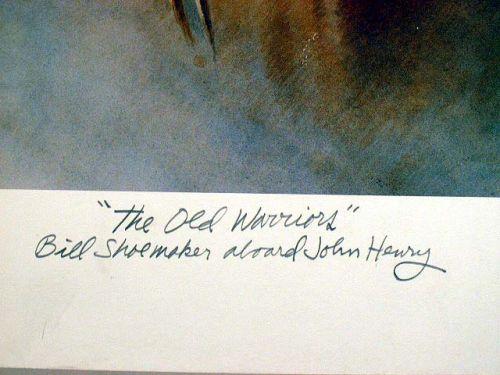 "The Old Warriors"
Bill Shoemaker aboard John Henry